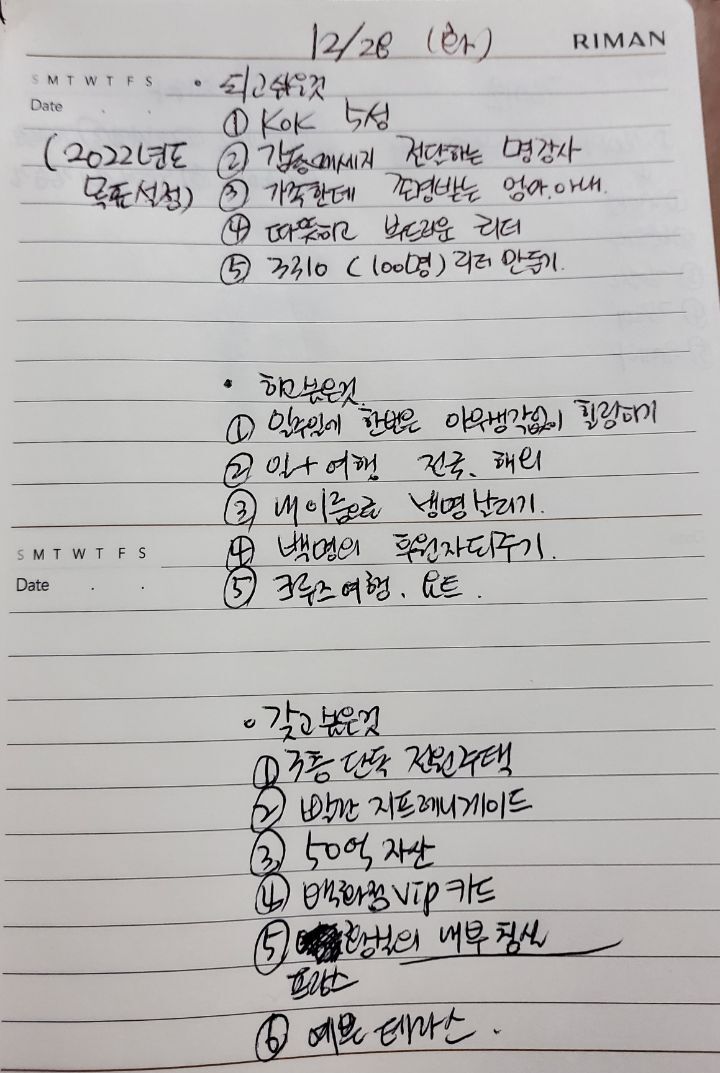 12/28 (화) RIMAN
S M T W T F S
Date . .
(2022년도
목표설정)
• 되고싶은것
① KOK 5성
② 감동메세지 전달하는 명강사
③ 가족한테 존경받는 엄마.아내.
④ 따뜻하고 부드러운 리더
⑤ 3310 (100명) 리더 만들기.
• 하고싶은것.
① 일주일에 한번은 아무생각없이 힐링하기
② 일+여행 전국. 해외
③ 내이름으로 날리기.
④ 백명의 후원자되주기.
S M T W T F S
Date . .
⑤ 크루즈여행. 요트.
• 갖고싶은것
① 3층 단독 전원주택
② 빨간 지프레니게이드
③ 50억 자산
④ 백화점 Vip 카드
⑤ 내부침실
프랑스
⑥ 예쁜 테라스.